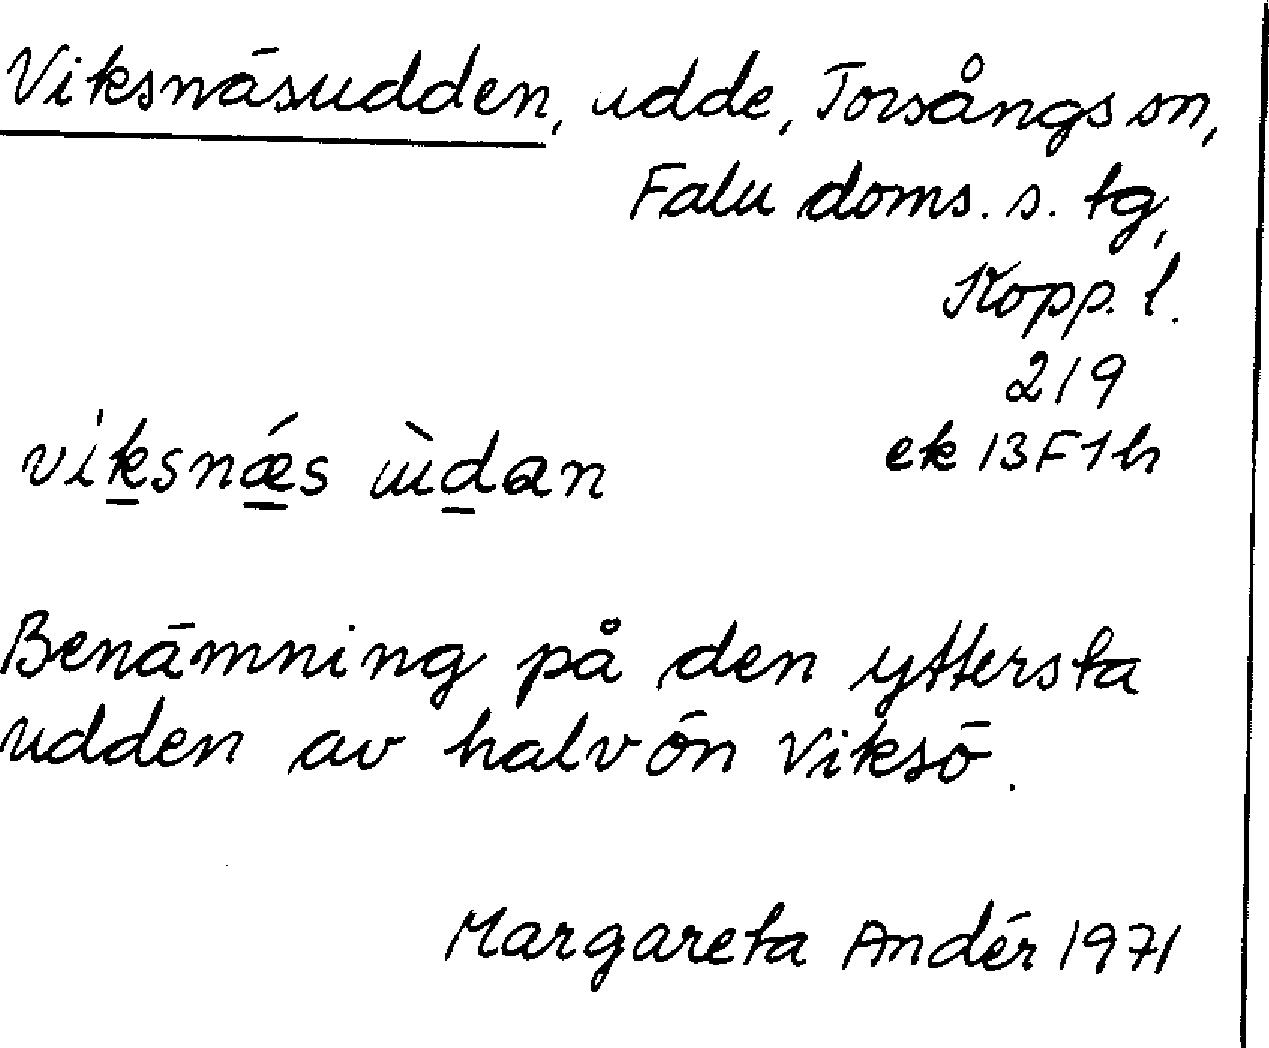 Viksnäsudden, udde, Torsångs sn,
Falu doms. s. tg,
Kopp. l.
219
ek 13F1h
viksnǽs ùdan
Benämning på den yttersta
udden av halvön Viksö.
Margareta Andér 1971